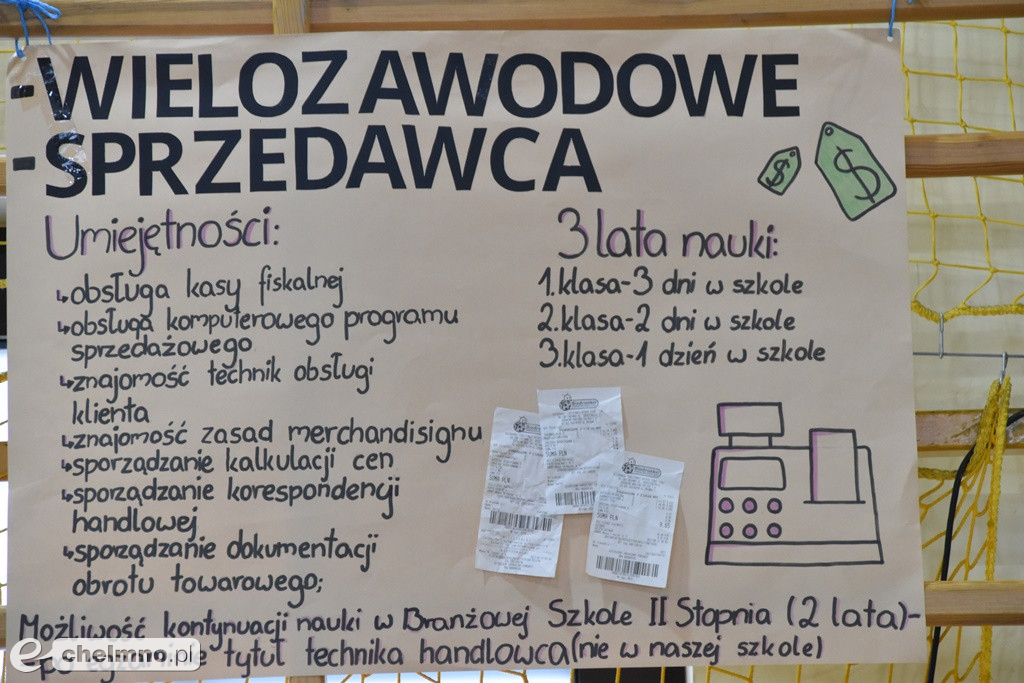 WIELOZAWODOWE
SPRZEDAWCA
Umiejętności:
obsługa kasy fiskalnej
obsługa komputerowego programu
sprzedażowego
znajomość technik obsługi
klienta
znajomość zasad merchandisignu
sporządzanie kalkulacji cen
sporządzanie korespondencji
handlowej
sporządzanie dokumentacji
obrotu towarowego;
3 lata nauki:
1.klasa-3 dni w szkole
2.klasa-2 dni w szkole
3.klasa-1 dzień w szkole
$
$
Biedronka
Biedronka
SUMA PLN
SUMA PLN
SUMA PLN
Możliwość kontynuacji nauki w Branżowej Szkole II Stopnia (2 lata)-
tytuł technika handlowca (nie w naszej szkole)
e-chelmno.pl